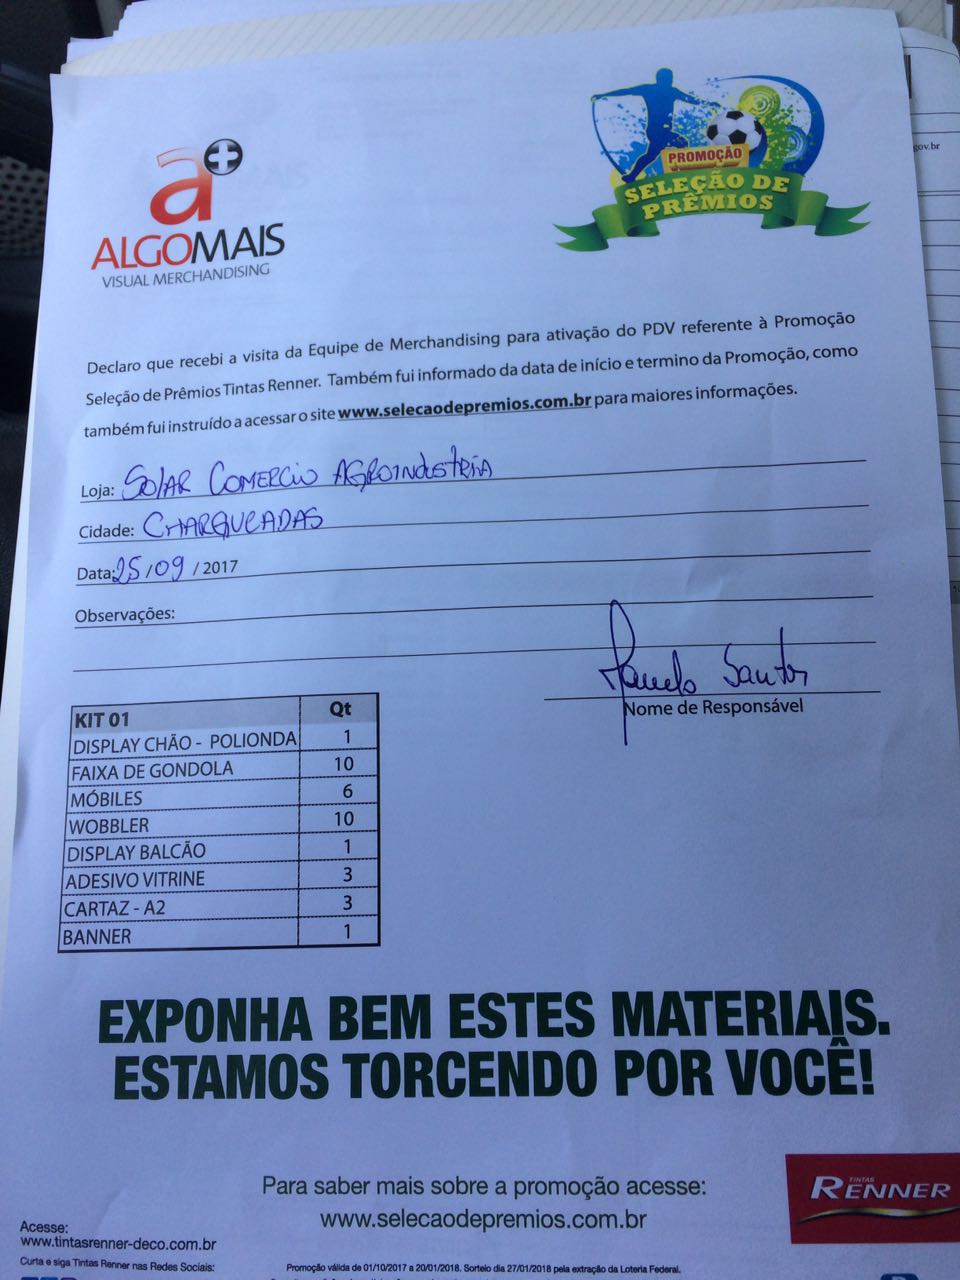 gov.br
a+
ALGOMAIS
VISUAL MERCHANDISING
PROMOÇÃO
SELEÇÃO DE
PRÊMIOS
Declaro que recebi a visita da Equipe de Merchandising para ativação do PDV referente à Promoção
Seleção de Prêmios Tintas Renner. Também fui informado da data de início e termino da Promoção, como
também fui instruído a acessar o site www.selecaodepremios.com.br para maiores informações.
Loja: SOLAR COMERCIO AGROINDUSTRIA
Cidade: CHARQUEADAS
Data: 25/09 / 2017
Observações:
Santos
Nome de Responsável
KIT 01 Qt
DISPLAY CHÃO - POLIONDA 1
FAIXA DE GONDOLA 10
MÓBILES 6
WOBBLER 10
DISPLAY BALCÃO 1
ADESIVO VITRINE 3
CARTAZ - A2 3
BANNER 1
EXPONHA BEM ESTES MATERIAIS.
ESTAMOS TORCENDO POR VOCÊ!
Para saber mais sobre a promoção acesse:
www.selecaodepremios.com.br
TINTAS
RENNER
Acesse:
www.tintasrenner-deco.com.br
Curta e siga Tintas Renner nas Redes Sociais:
Promoção válida de 01/10/2017 a 20/01/2018. Sorteio dia 27/01/2018 pela extração da Loteria Federal.